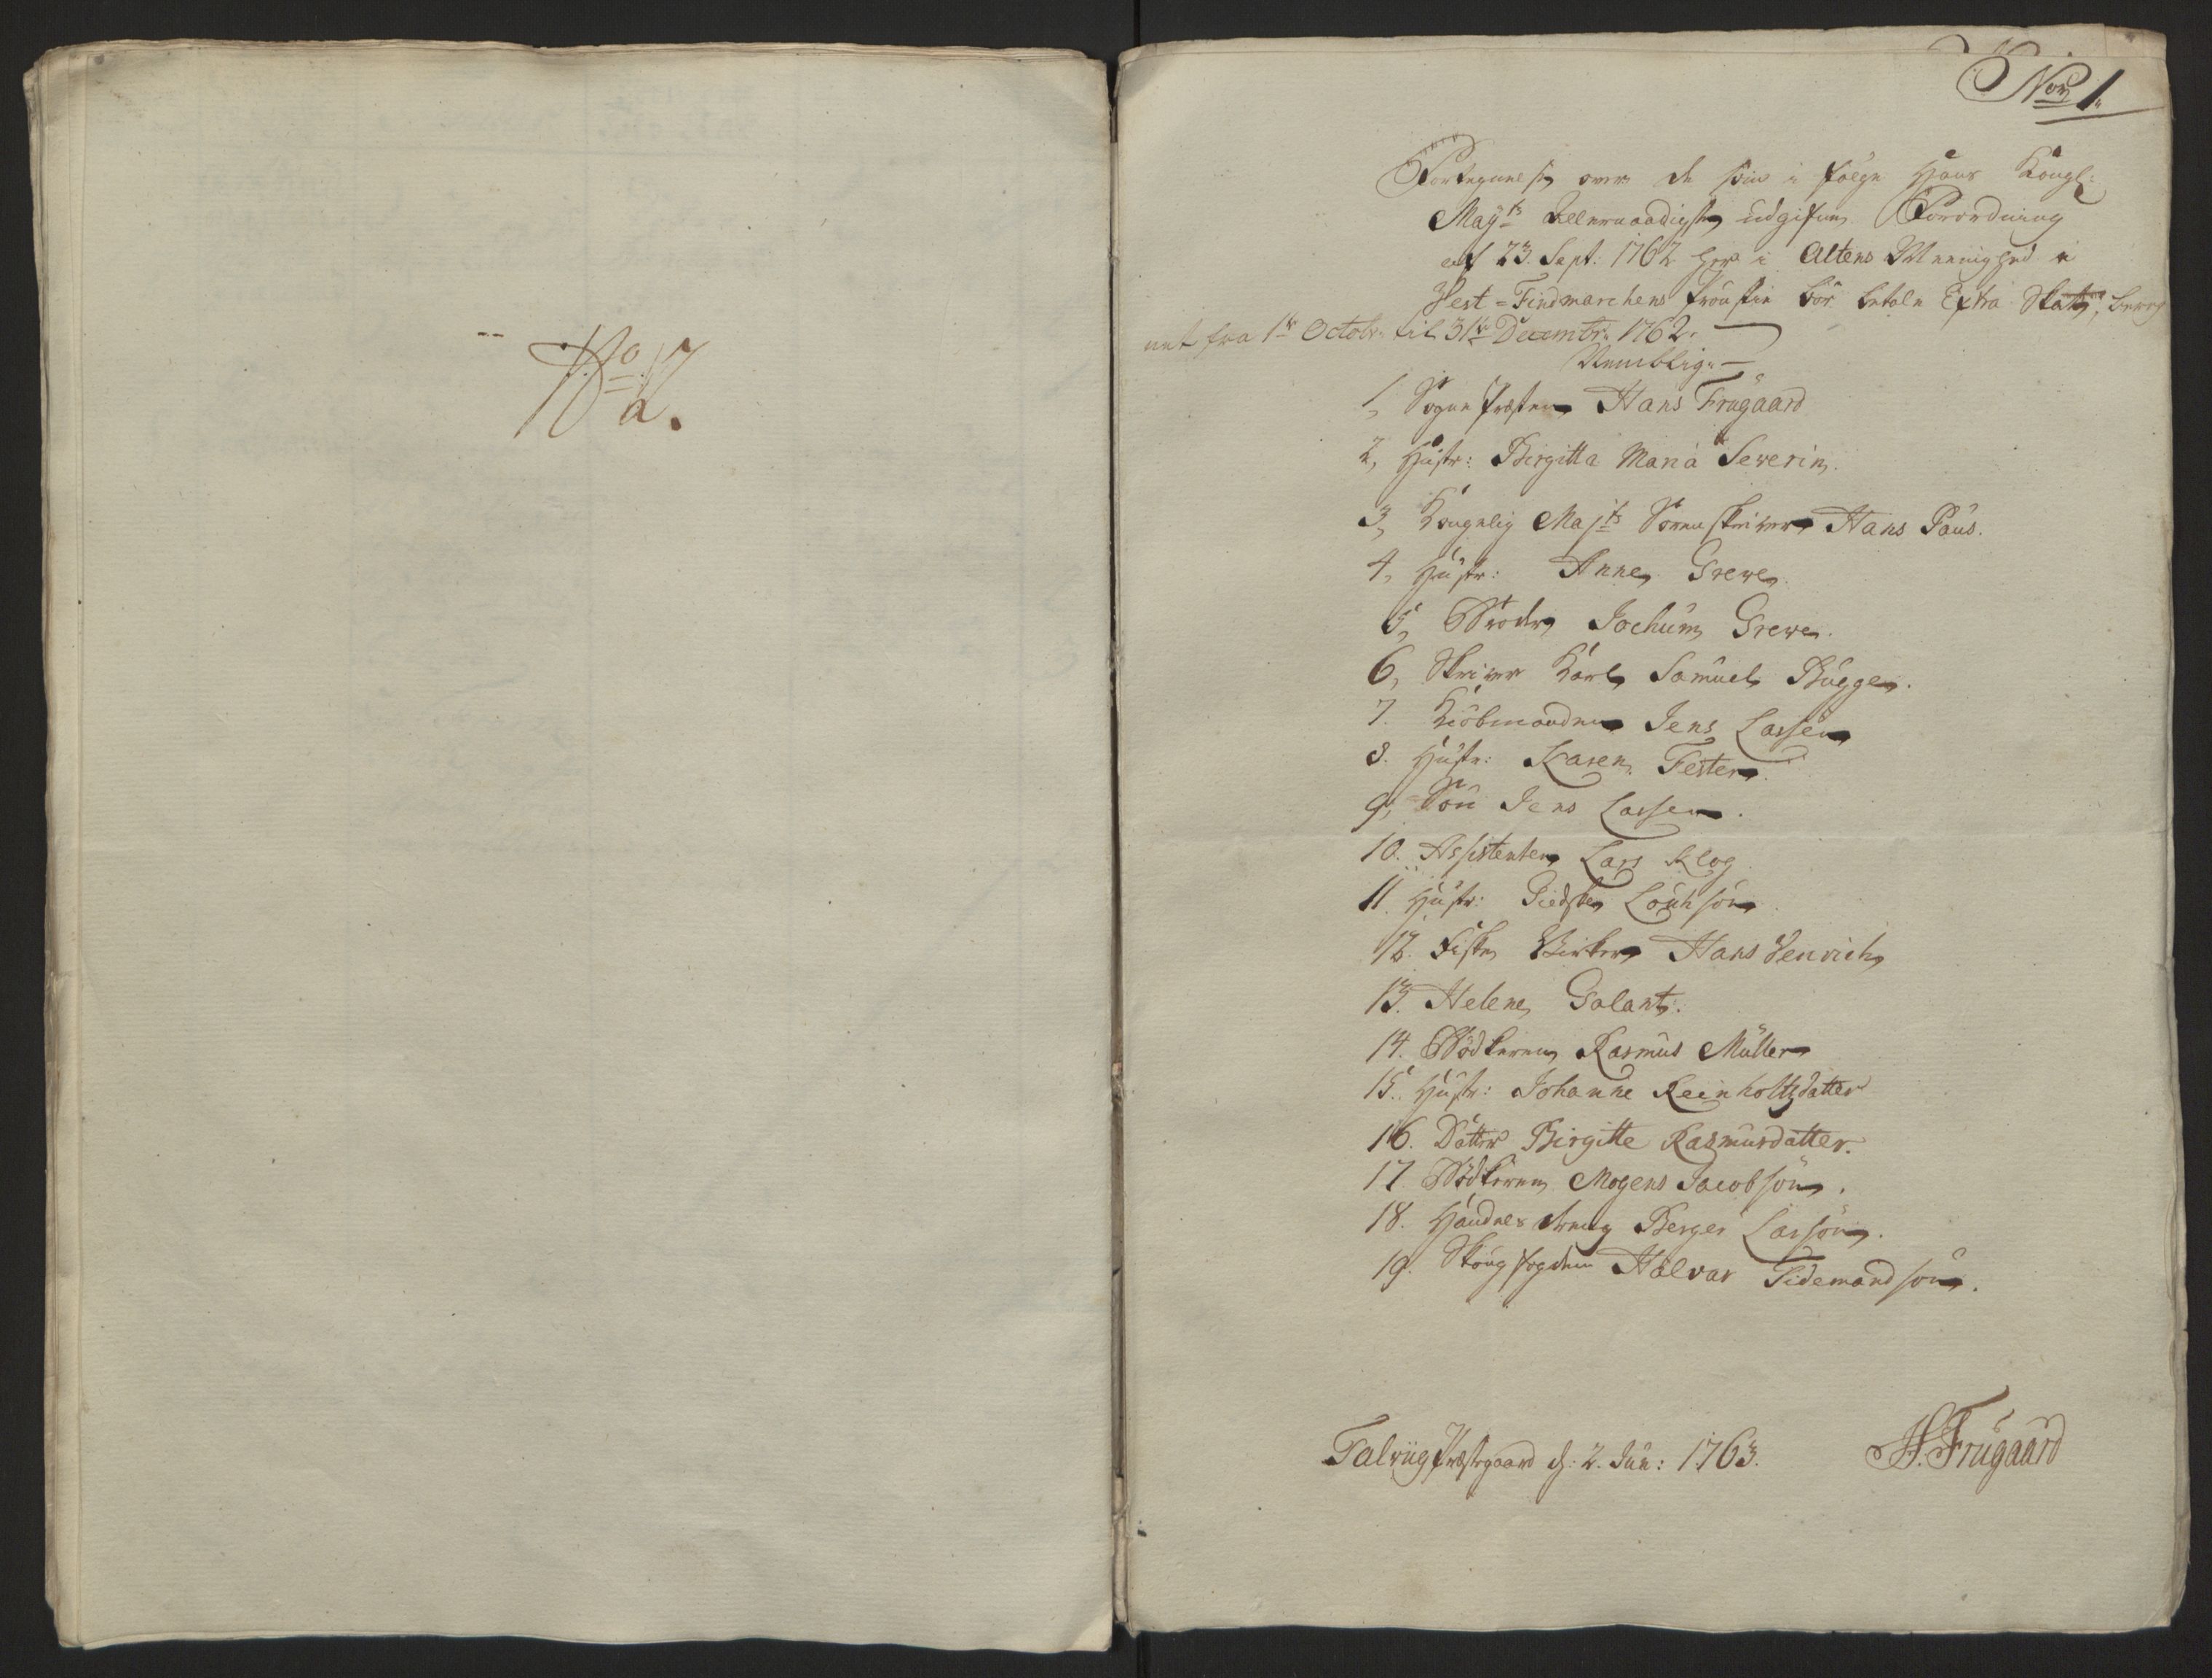 No 2.
No 1.
Fortegnelse over de som i følge Hans Kongl:
Mayts Allernaadigste udgifne Forordning
af 23. Sept: 1762 her i Altens Menighed i
Vest-FindmarchensProustie bör betale Extra Skatt, bereg
net fra 1te Octobr: til 31te Decembr: 1762.
Nemblig:
1, Sogne Præsten Hans Frugaard
2, Hustr: Birgitta Maria Severin.
3, Kongelig Majts Sorenskriver Hans Paus.
4, Hustr: Anne Greve
5, Broder Jochum Greve.
6, Skriver Karl Samuel Bugge.
7. Kiöbmanden Jens Lassen
8. Hustr: Karen Fester.
9, Sön Jens Lassen.
10. Assistenten Lars Klog
11. Hustr: Giedske
12. Fiske Hans Henrich
13. Helene Galant.
14. Bödkeren Rasmus Müller
15. Hustr: Johanne Reinholtzdatter
16. Datter Birgitte Rasmusdatter.
17. Bödkeren Mogens Jacobsön.
18. Handels dreng Berger Larsön.
19. Skougfogden Halvar Tidemandsön.
Talvüg Præstegaard d: 2. Jan: 1763. H. Frugaard